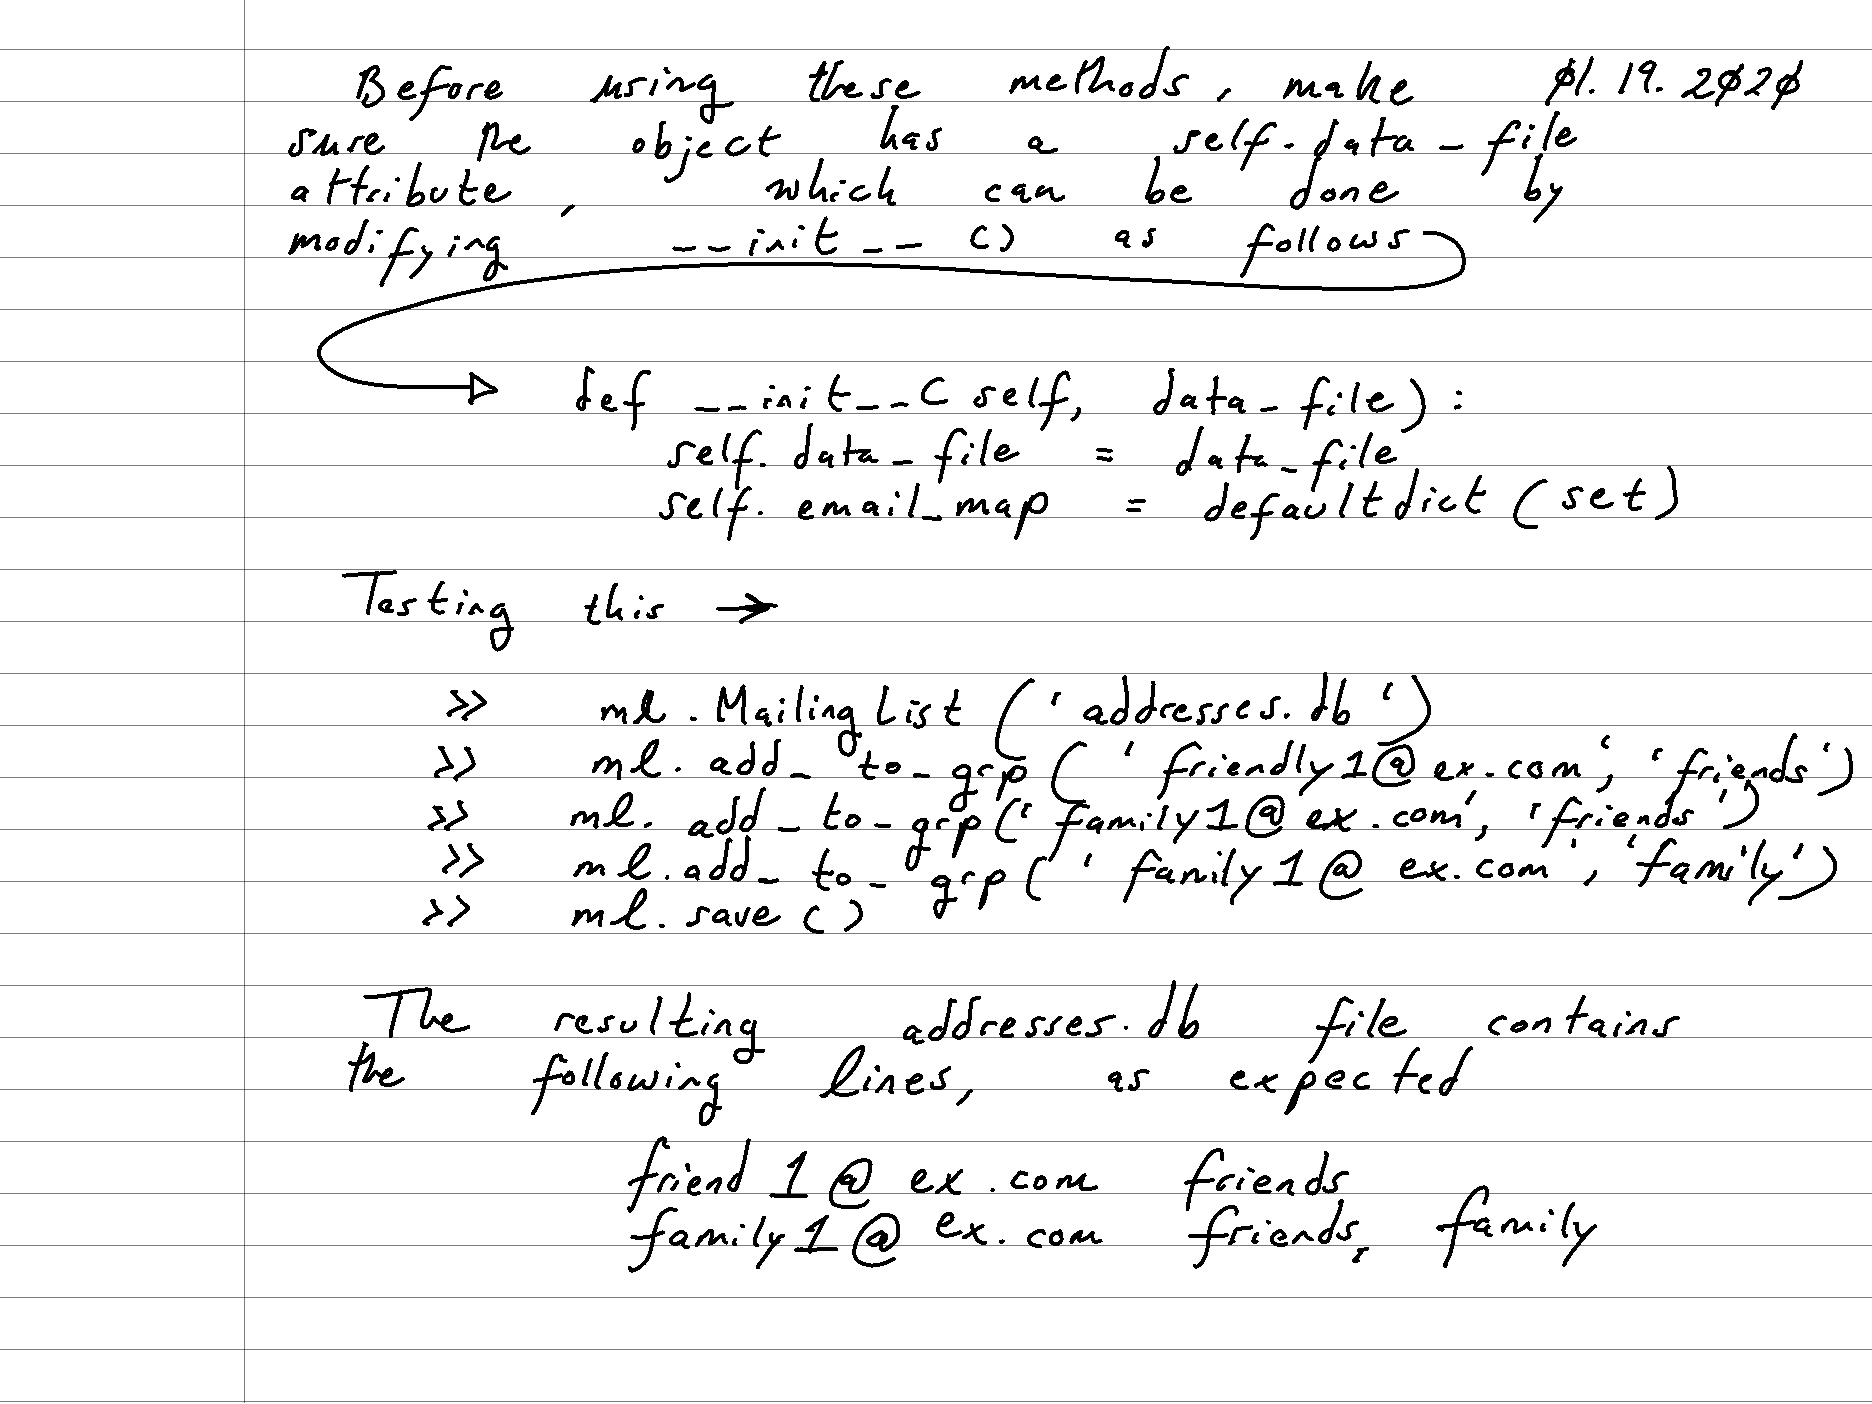 Before using these methods, make 01.19.2020
sure the object has a self.data_file
attribute, which can be done by
modifying __init__() as follows
def __init__(self, data_file):
self.data_file = data_file
self.email_map = defaultdict(set)
Testing this →
>> ml.MailingList('addresses.db')
>> ml.add_to_grp('friendly1@ex.com', 'friends')
>> ml.add_to_grp('family1@ex.com', 'friends')
>> ml.add_to_grp('family1@ex.com', 'family')
>> ml.save()
The resulting addresses.db file contains
the following lines, as expected
friend1@ex.com friends
family1@ex.com friends, family